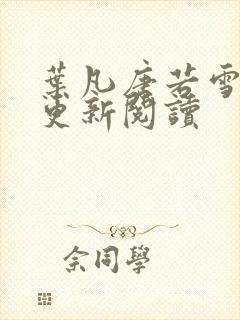 葉凡唐若雪
更新閱讀
佘同學